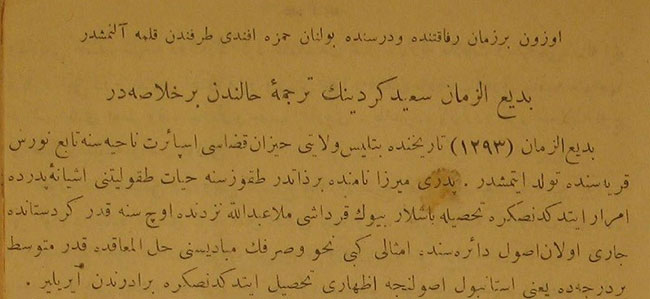 اوزون برزمان رفاقتنده ودرسنده بولنان حمزه افندی طرفندن قلمه آلنمشدر
بدیع الزمان سعید کردینك ترجمهٔ حالندن برخلاصه‌در
بدیع‌الزمان (۱۲۹۳) تاریخنده بتلیس ولایتی حیزان قضاسی اسپائرت ناحیه‌سنه تابع نورس
قریه‌سنده تولد ایتمشدر . پدری میرزا نامنده برذاتدر طقوزسنه حیات طفولیتنی آشیانهٔ پدرده
امرار ایتدکدنصکره تحصیله باشلار بیوك قرداشی ملاعبدالله نزدنده اوچ سنه قدر کردستانده
جاری اولان اصول دائره‌سنده امثالی کبی نحو وصرفك مبادیسنی حل المعاقده قدر متوسط
بردرجه‌ده یعنی استانبول اصولنجه اظهاری تحصیل ایتدکدنصکره برادرندن آیریلیر .